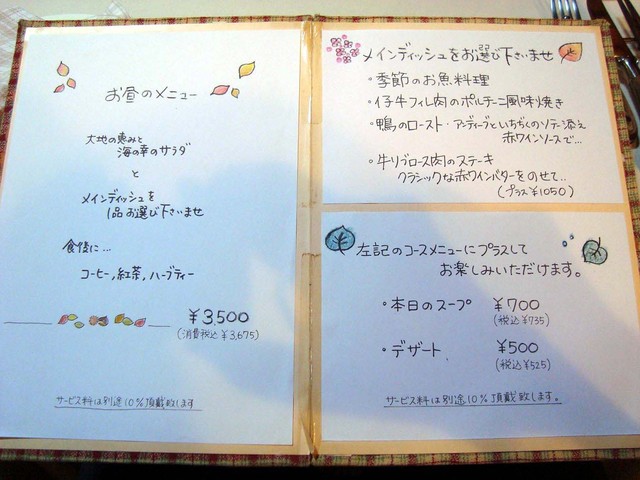 お昼のメニュー
大地の恵みと
海の幸のサラダ
と
メインディッシュを
1品お選び下さいませ
食後に…
コーヒー,紅茶,ハーブティー
¥3,500
(消費税込¥3,675)
サービス料は別途10%頂戴致します
メインディッシュをお選び下さいませ
・季節のお魚料理
・仔牛フィレ肉のポルチーニ風味焼き
・鴨のロースト・アンディーブといちぢくのソテー添え
赤ワインソースで…
・牛リブロース肉のステーキ
クラシックな赤ワインバターをのせて…
(プラス¥1050)
左記のコースメニューにプラスして
お楽しみいただけます。
・本日のスープ ¥700
(税込¥735)
・デザート ¥500
(税込¥525)
サービス料は別途10%頂戴致します。